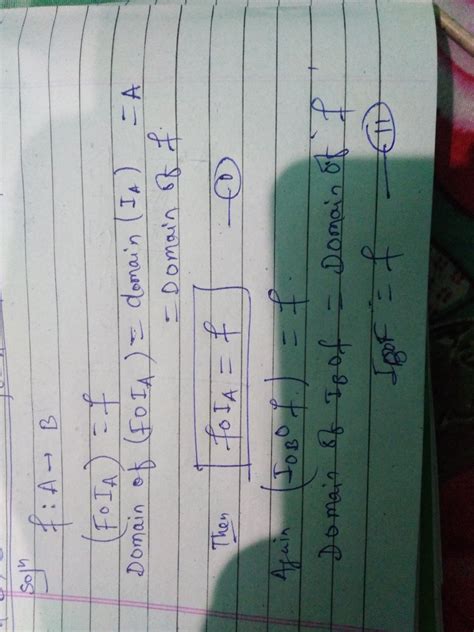 Soln
f : A → B
(FOIA) = f
Domain of (FOIA) = domain (IA) = A
= Domain of f.
Then foIA = f —(I)
Again (IOBO f) = f
Domain of IBOf = Domain of f
IBOF = f —(II)